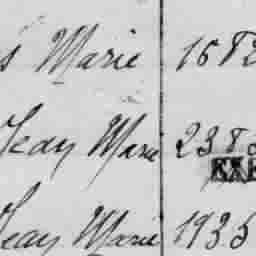 s Marie 1682
Jean Marie 238
Jean Marie 1935